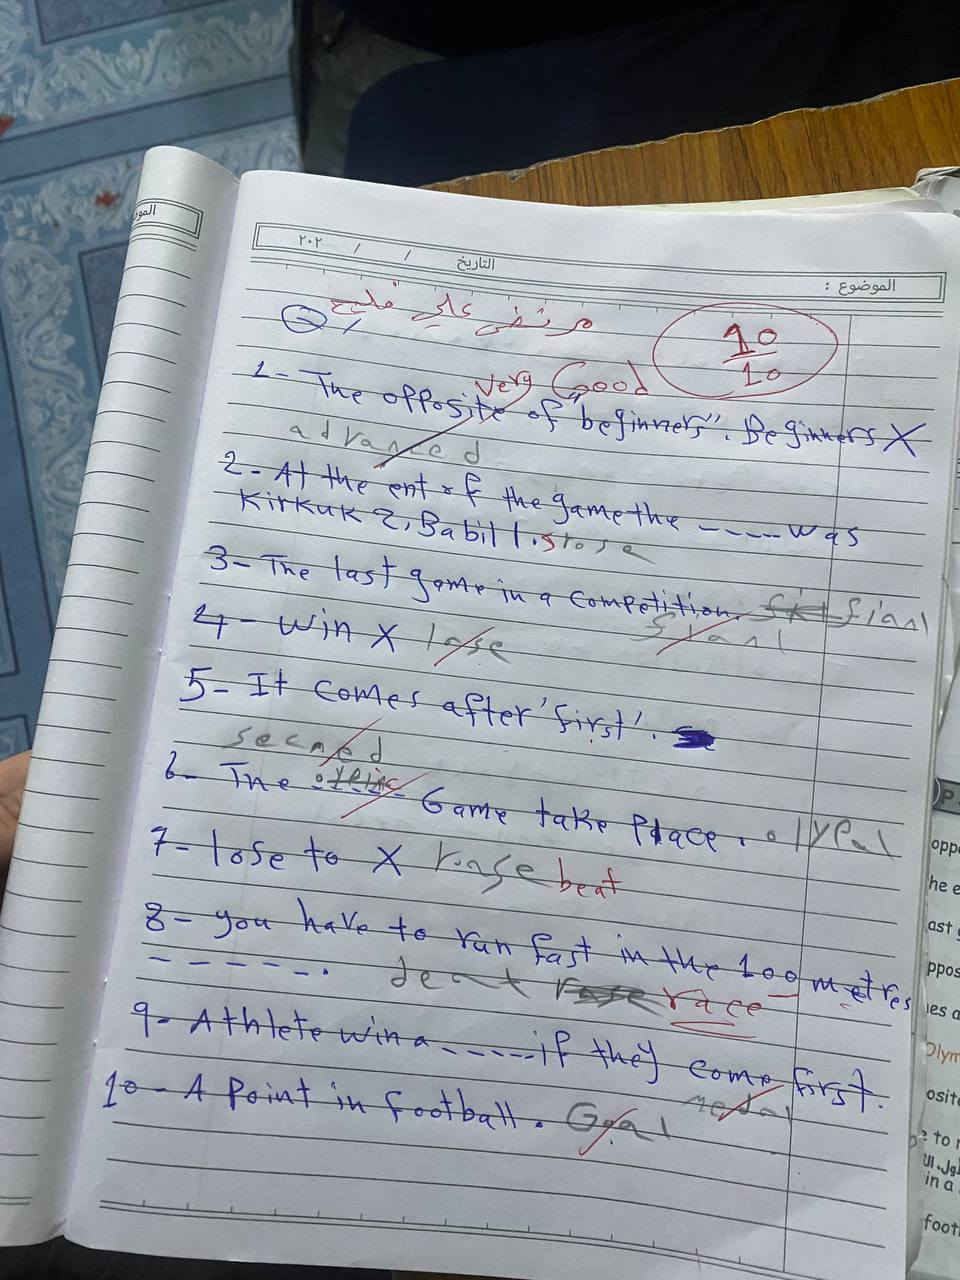 الموضوع :
التاريخ / / ٢٠٢
مرتضى علي فليح
10
10
Very Good
1- The opposite of "beginners". Beginners X
advanced
2- At the ent of the game the ---- was
Kirkuk 2, Babil 1.
3- The last game in a competition. fianl
fianl
4- win X lose
5- It comes after 'first'.
secned
6- The Game take place. olypal
7- lose to X beat
8- you have to run fast in the 100 metres
------. race
9- Athlete win a ------ if they come first.
medal
10- A point in football. Goal